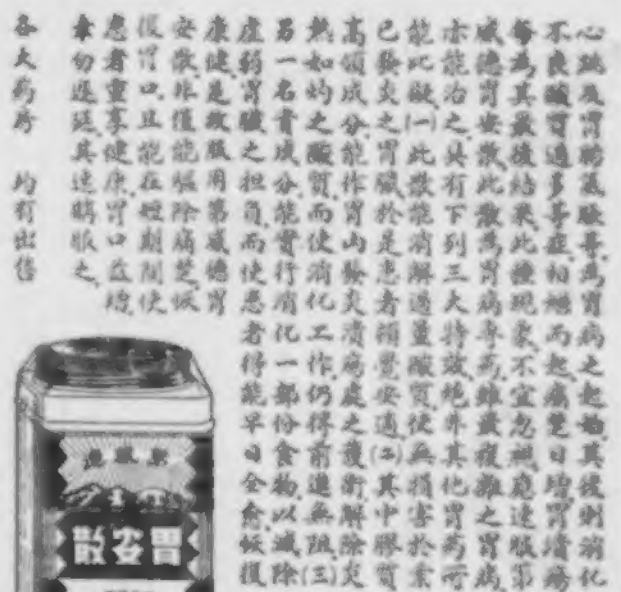 心跳及胃腸氣脹等為胃病之起始其後則消化
不良酸胃過多等症相繼而起痛楚日增胃潰瘍
每為其最後結果此種現象不宜忽視應速服第
威德胃安散此散為胃病專药雖最複雜之胃病
亦能治之具有下列三大特效絶非其他胃药所
能比擬(一)此散能消解過量酸質使無損害於業
已發炎之胃臟於是患者頓覺安適(二)其中膠質
高嶺成分能作胃山發炎潰瘍處之護衛解除炎
熱如灼之酸質而使消化工作仍得前進無阻(三)
另一名貴成分能實行消化一部份食物以減除
虛弱胃臟之担負而使患者得能早日全愈恢復
康健是故服用第威德胃
安散非僅能驅除痛楚恢
復胃口且能在短期間使
患者重享健康胃口益增
幸勿遲延其速購服之
各大药房 均有出售
胃安散